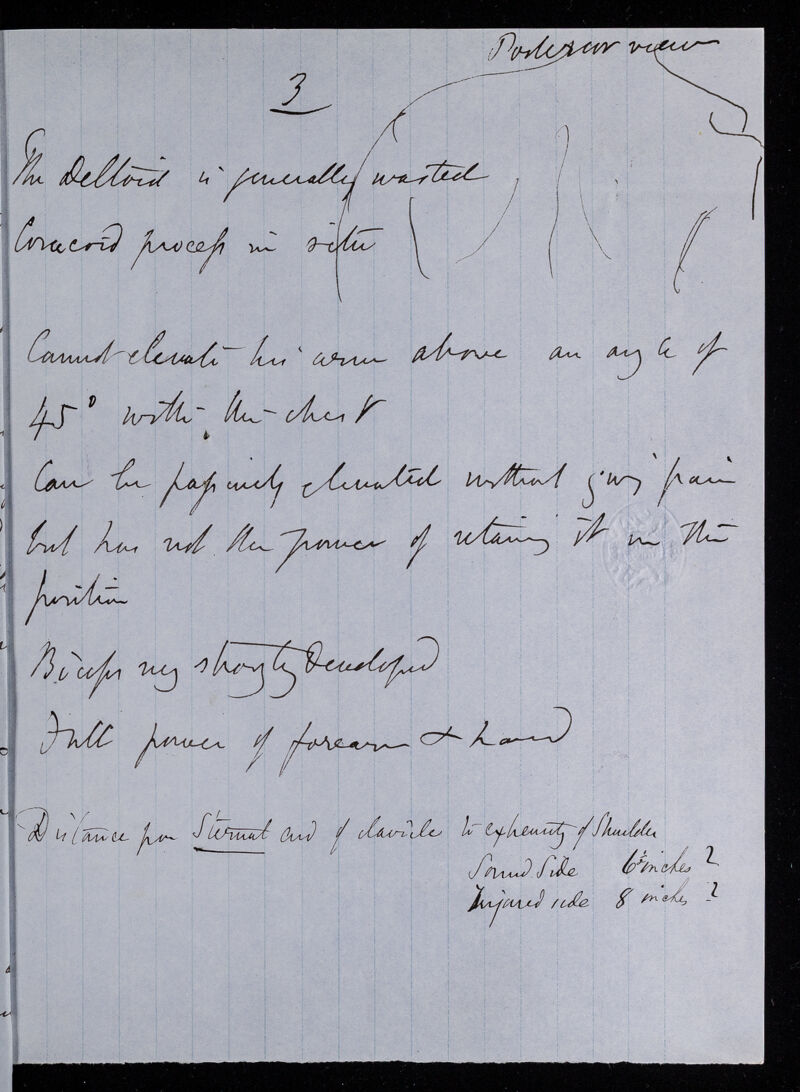 Posterior view
3
The Deltoid is generally wasted
Coracoid process in situ
Cannot elevate his arm above an angle of
45° with the chest
Can be passively elevated without giving pain
but has not the power of retaining it in this
position
Biceps very strongly Developed
Full power of forearm & hand
Distance from Sternal end of clavicle to extremity of Shoulder
Sound Side 6½ inches ?
Injured side 8 inches ?